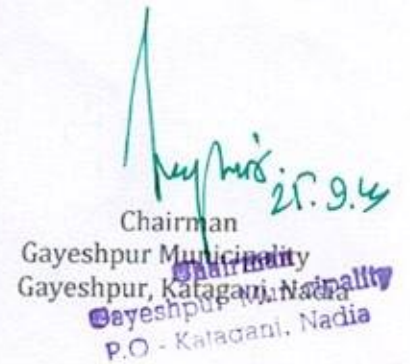 Chairman
Gayeshpur Municipality
Gayeshpur, Kataganj, Nadia
Chairman
Gayeshpur Municipality
P.O - Kataganj, Nadia